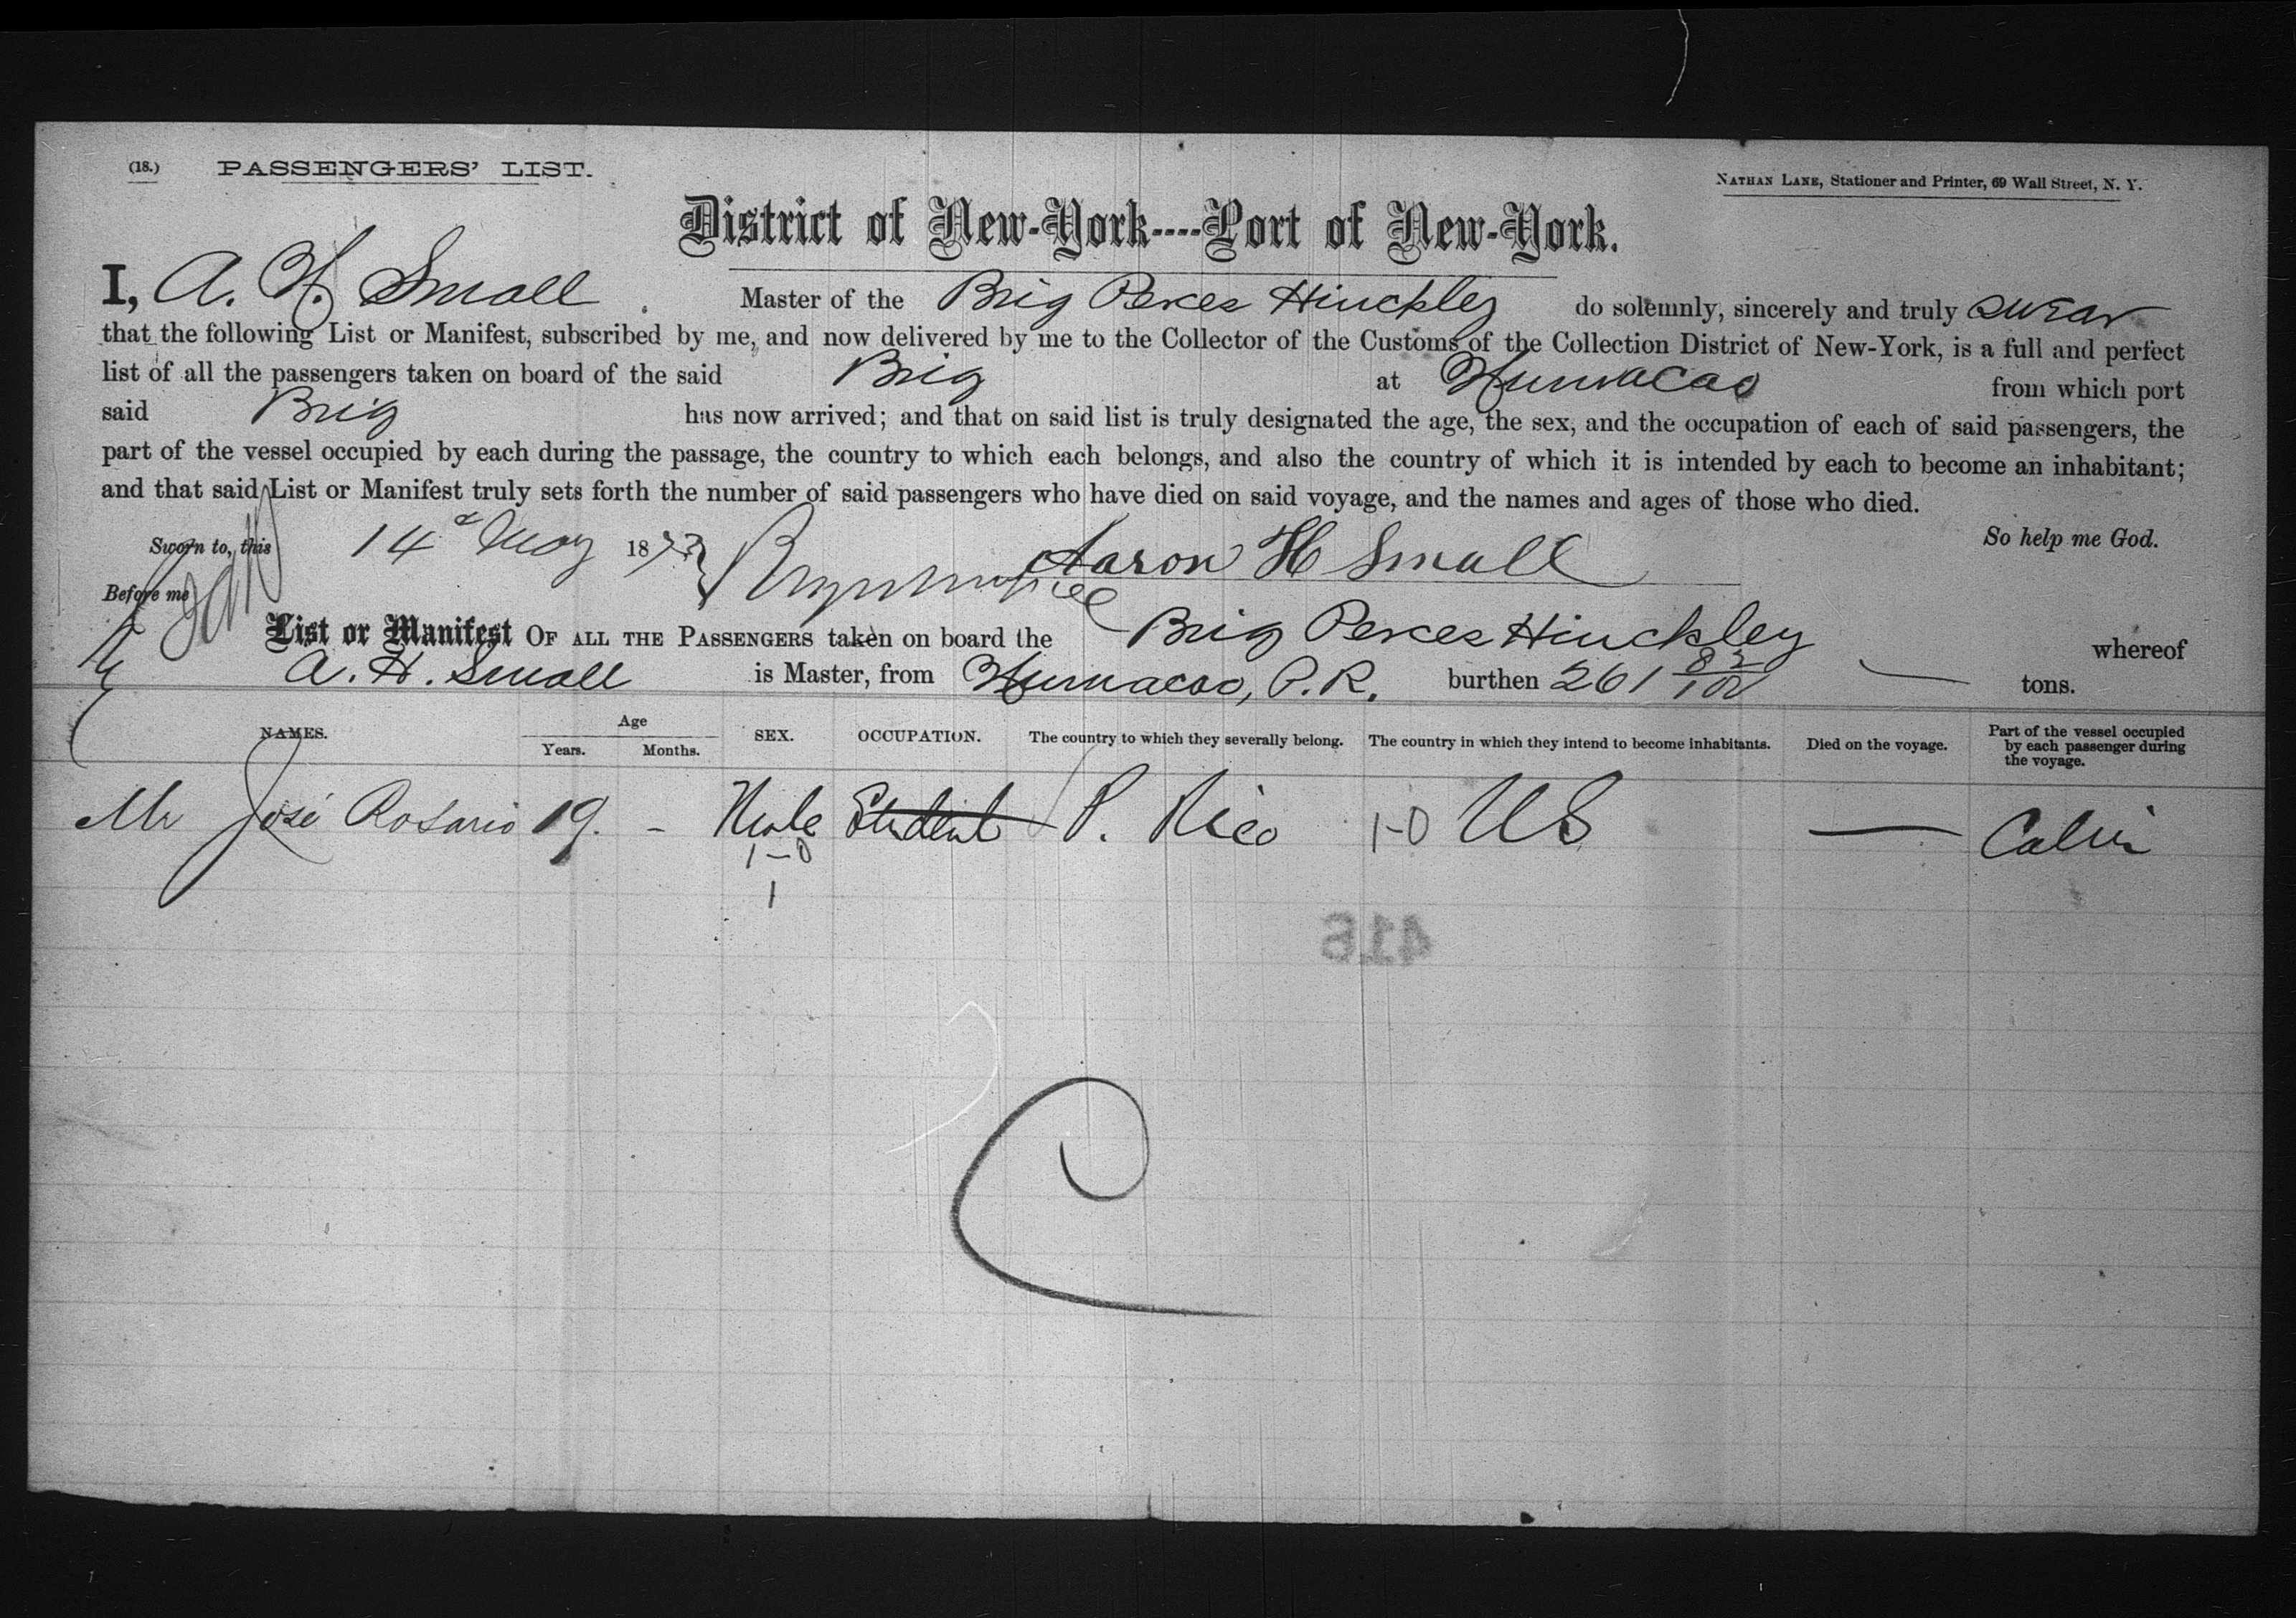 (18.) PASSENGERS' LIST.
NATHAN LANE, Stationer and Printer, 69 Wall Street, N. Y.
District of New-York----Port of New-York.
I, A. H. Small Master of the Brig Perces Hinckley do solemnly, sincerely and truly swear
that the following List or Manifest, subscribed by me, and now delivered by me to the Collector of the Customs of the Collection District of New-York, is a full and perfect
list of all the passengers taken on board of the said Brig at Humacao from which port
said Brig has now arrived; and that on said list is truly designated the age, the sex, and the occupation of each of said passengers, the
part of the vessel occupied by each during the passage, the country to which each belongs, and also the country of which it is intended by each to become an inhabitant;
and that said List or Manifest truly sets forth the number of said passengers who have died on said voyage, and the names and ages of those who died.
So help me God.
Sworn to, this 14 May 1873 Aaron H Small
Before me
List or Manifest OF ALL THE PASSENGERS taken on board the Brig Perces Hinckley whereof
A. H. Small is Master, from Humacao, P.R. burthen 261 82/100 tons.
NAMES. Age Years. Months. SEX. OCCUPATION. The country to which they severally belong. The country in which they intend to become inhabitants. Died on the voyage. Part of the vessel occupied by each passenger during the voyage.
Mr José Rosario 19. - Male Student P. Rico 1-0 US — Cabin
1-0
1
416